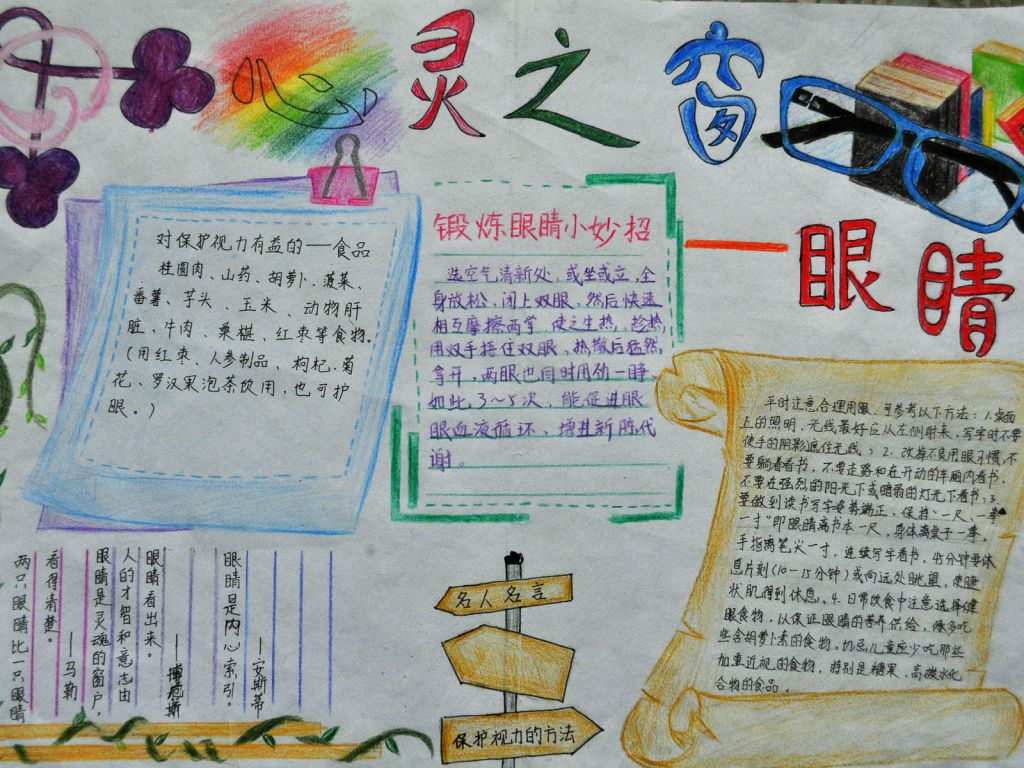 心灵之窗
——眼睛
对保护视力有益的——食品
桂圆肉、山药、胡萝卜、菠菜、
番薯、芋头、玉米、动物肝
脏、牛肉、桑椹、红枣等食物。
(用红枣、人参制品、枸杞、菊
花、罗汉果泡茶饮用,也可护
眼。)
锻炼眼睛小妙招
选空气清新处,或坐或立,全
身放松,闭上双眼,然后快速
相互摩擦两掌,使之生热,趁热
用双手捂住双眼,热散后猛然
拿开,两眼也同时用劲一睁,
如此3~5次,能促进眼
眼血液循环,增进新陈代
谢。
平时注意合理用眼,可参考以下方法:1.桌面
上的照明,光线最好应从左侧射来,写字时不要
使手的阴影遮住光线;2、改掉不良用眼习惯,不
要躺着看书,不要走路和在开动的车厢内看书,
不要在强烈的阳光下或暗弱的灯光下看书;3、
要做到读书写字姿势端正,保持"一尺、一拳、
一寸"即眼睛离书本一尺,身体离桌子一拳,
手指离笔尖一寸,连续写字看书,45分钟要休
息片刻(10-15分钟)或向远处眺望,使睫
状肌得到休息。4.日常饮食中注意选择健
眼食物,以保证眼睛的营养供给,像多吃
些含胡萝卜素的食物。切忌儿童应少吃那些
加重近视的食物,特别是糖果、高碳水化
合物的食品。
名人名言
保护视力的方法
眼睛是内心索引。
——安斯蒂
眼睛是灵魂的窗户,
人的才智和意志由
眼睛看出来。
——博厄斯
两只眼睛比一只眼睛
看得清楚。
——马勒